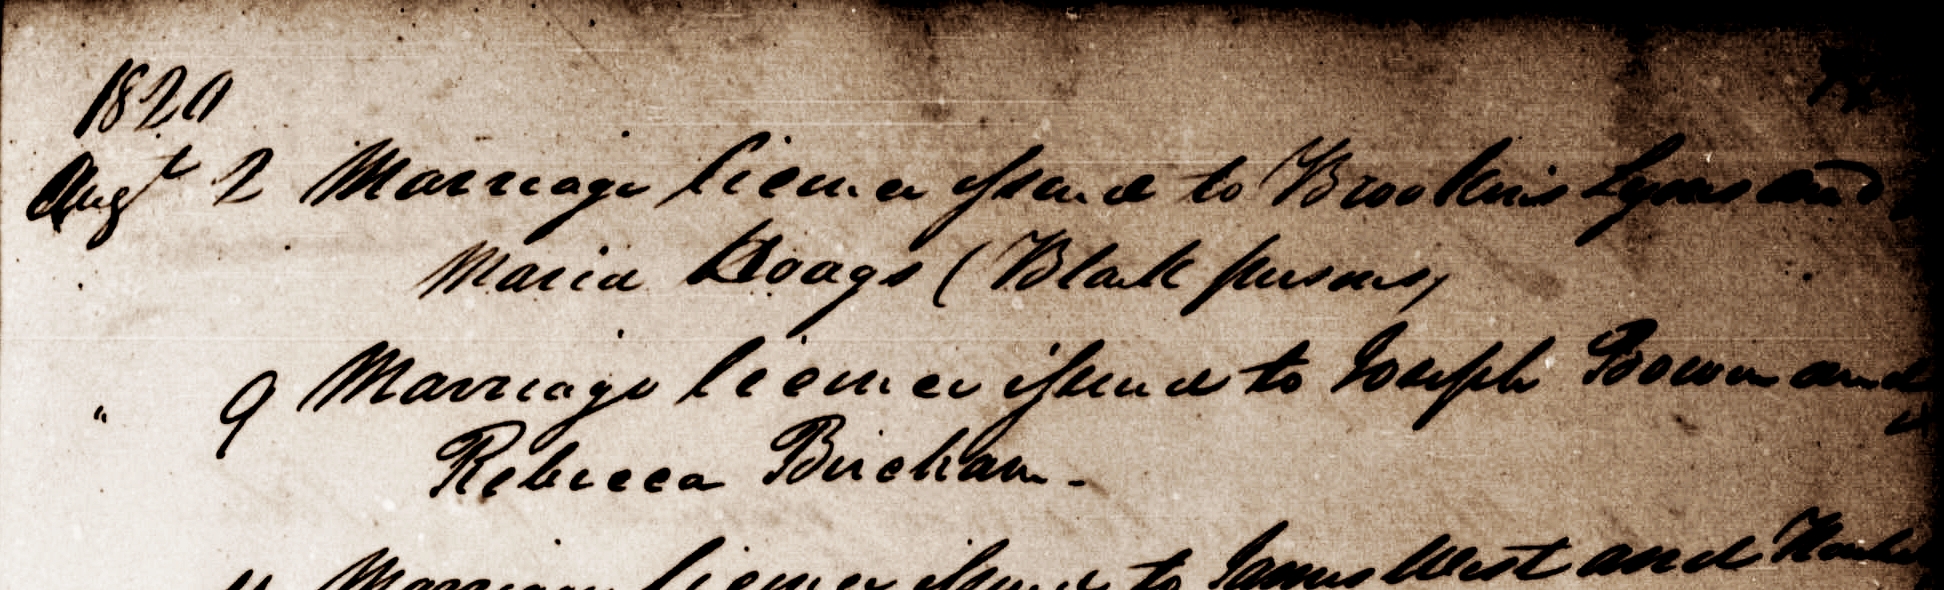 1820
Augt 2 Marriage licence issued to Brookins Lyons and
Maria Hoags (Black persons)
" 9 Marriage licence issued to Joseph Bowen and
Rebecca Bircham -
Marriage licence issued to James West and